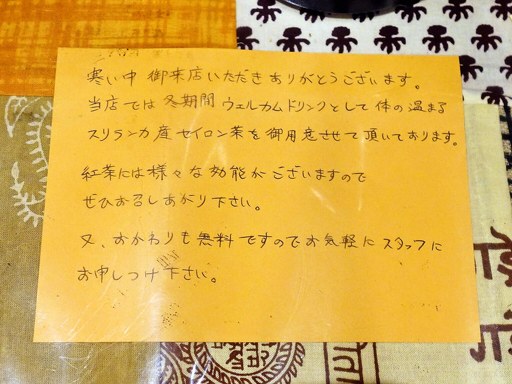 寒い中 御来店いただきありがとうございます。
当店では 冬期間 ウェルカムドリンクとして 体の温まる
スリランカ産 セイロン茶を御用意させて頂いております。
紅茶には様々な効能がございますので
ぜひお召しあがり下さい。
又、おかわりも無料ですのでお気軽にスタッフに
お申しつけ下さい。